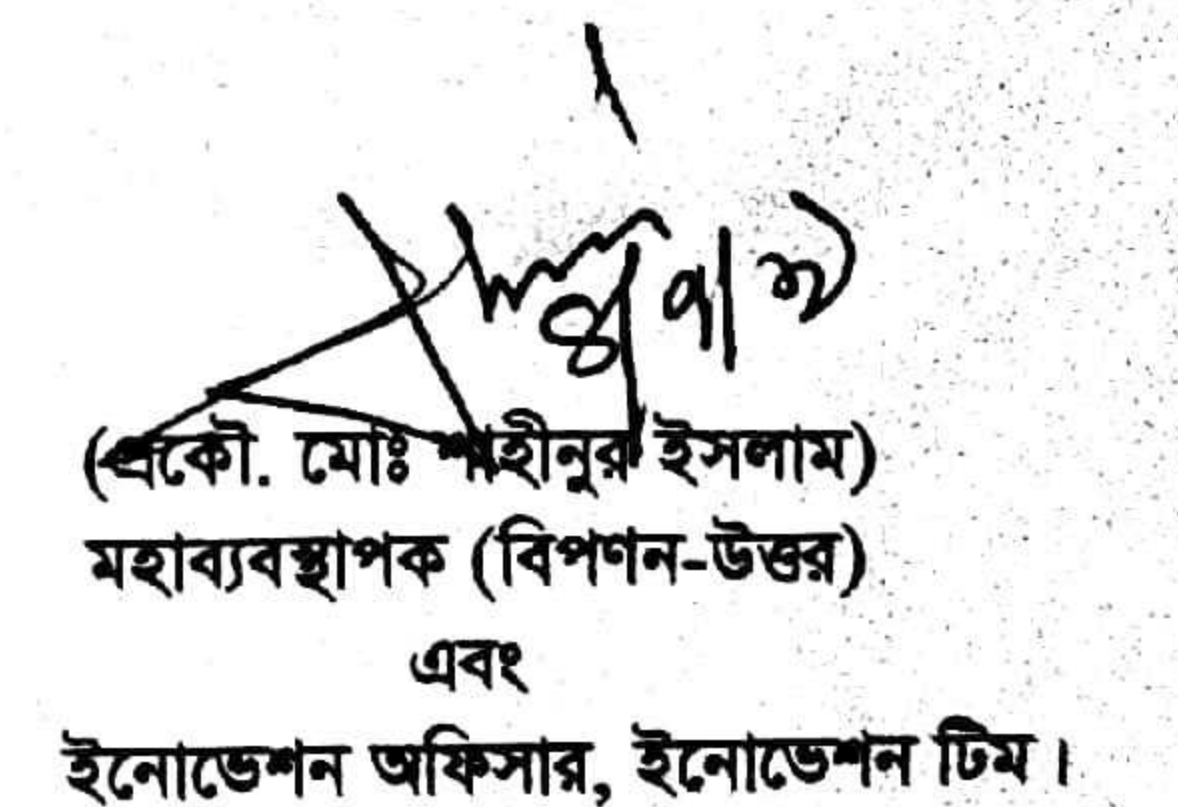 (প্রকৌ. মোঃ শাহীনুর ইসলাম)
মহাব্যবস্থাপক (বিপণন-উত্তর)
এবং
ইনোভেশন অফিসার, ইনোভেশন টিম।